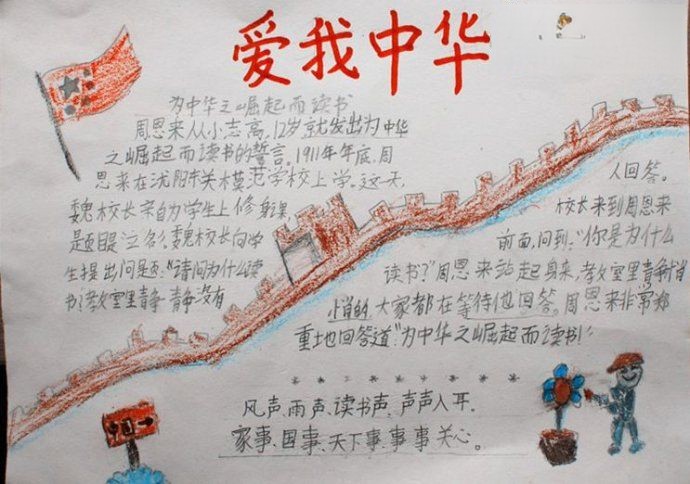 爱我中华
为中华之崛起而读书
周恩来从小志高,12岁就发出为中华
之崛起而读书的誓言。1911年年底,周
恩来在沈阳东关模范学校上学。这天,
魏校长亲自为学生上修身课,
题目是立名,魏校长向学
生提出问题:“请问为什么读
书?教室里静静静没有
人回答。
校长来到周恩来
前面,问到:“你是为什么
读书?”周恩来站起身来,教室里静静悄
悄的,大家都在等待他回答。周恩来非常郑
重地回答道:“为中华之崛起而读书!”
风声、雨声、读书声,声声入耳、
家事、国事、天下事,事事关心。